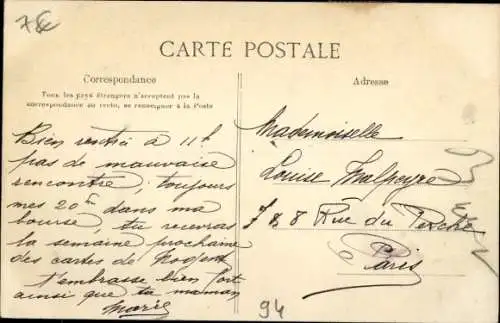 78
CARTE POSTALE
Correspondance
Tous les pays étrangers n'acceptent pas la
correspondance au recto, se renseigner à la Poste
Adresse
Bien rentrée à 11h
pas de mauvaise
rencontre, toujours
mes 20 dans ma
bourse, tu recevras
la semaine prochaine
des cartes de Nogent
t'embrasse bien fort
ainsi que ta maman
Marie
Mademoiselle
Louise Malpeyre
7 & 8 Rue du Perche
Paris
94